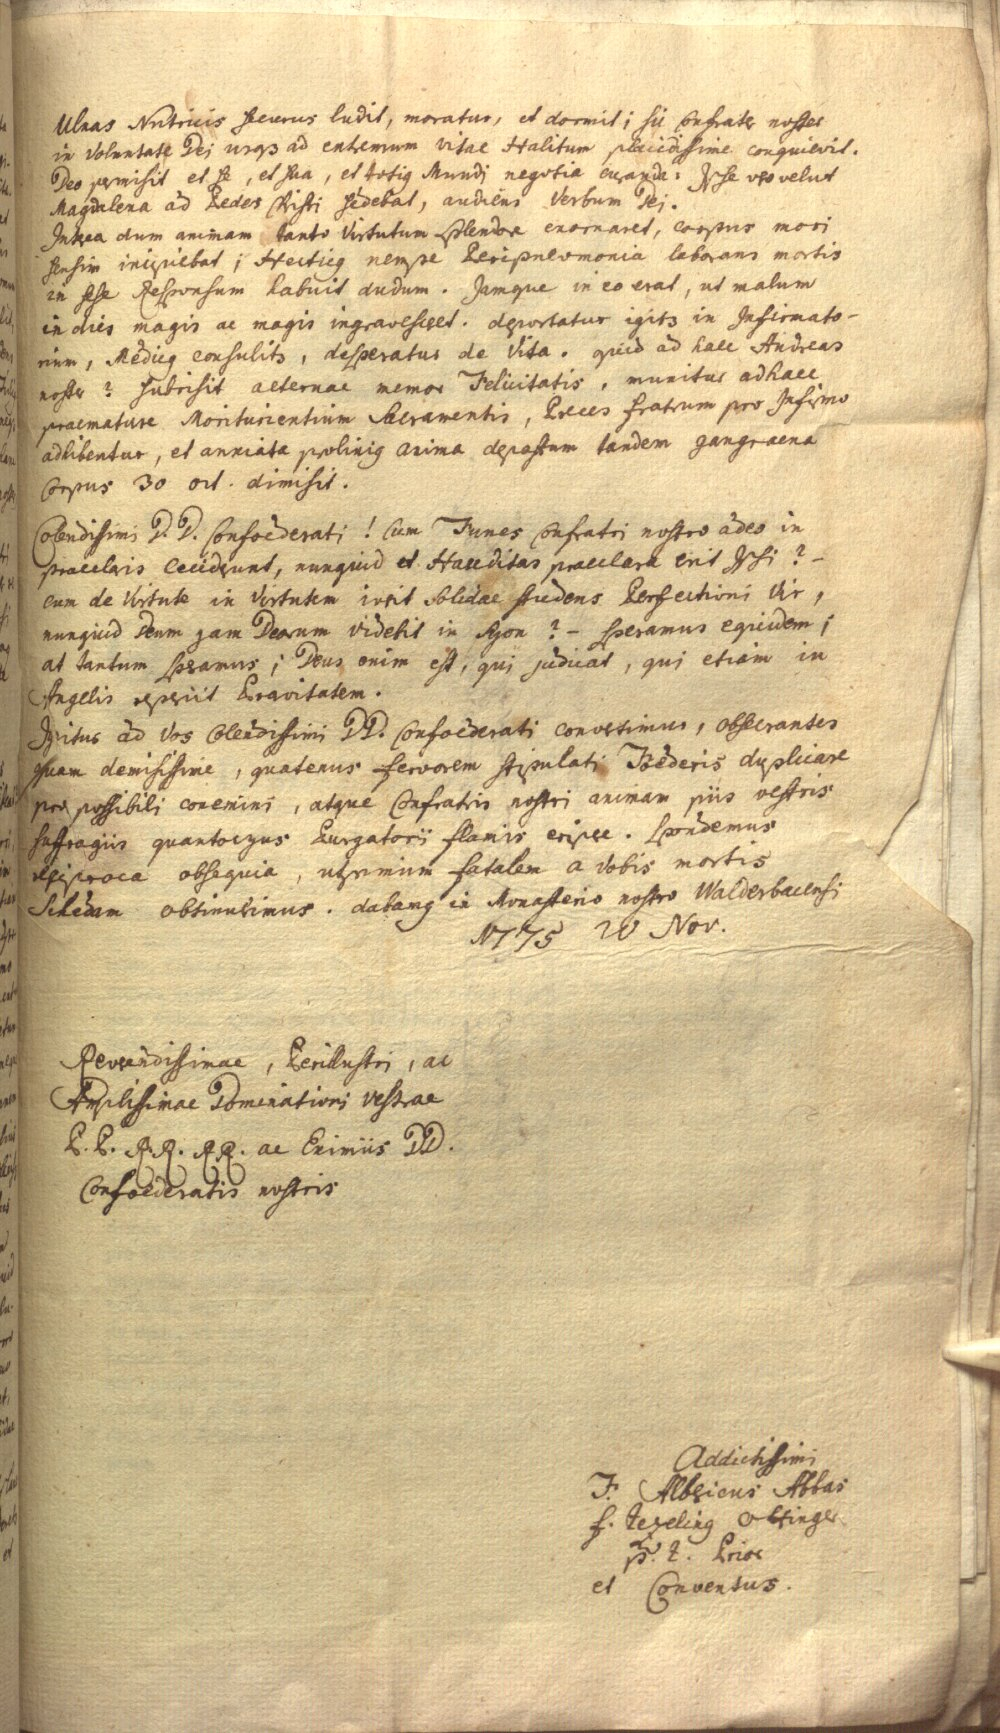 Ulnas Nutricis securus ludit, moratur, et dormit; sic Confrater noster
in Voluntate Dei usq3 ad extremum vitae Halitum placidissime conquievit.
Deo permisit et se, et sua, et totig Mundi negotia curanda: Ipse vero velut
Magdalena ad Pedes Christi sedebat, audiens Verbum Dei.
Interea dum animam tanto Virtutum splendore exornaret, corpus mori
sensim incipiebat; Hecticg nempe Peripneomonia laborans mortis
in sese Responsum habuit dudum. Jamque in eo erat, ut malum
in dies magis ac magis ingravesceret. deportatur igitr in Infirmato-
rium, Medicg consulitr, desperatur de Vita. quid ad haec Andreas
noster? subrisit aeternae memor Felicitatis, munitur adhaec
praemature Moriturientium Sacramentis, Preces fratrum pro Infirmo
adhibentur, et anxiata prolixig anima depastum tandem gangraena
Corpus 30 oct. dimisit.
Colendissimi D.D. Confoederati! Cum Funes Confratri nostro adeo in
praeclaris ceciderunt, nunquid et Haereditas praeclara erit Ipsi? -
cum de Virtute in Virtutem iverit solidae studens Perfectioni Vir,
nunquid Deum jam Deorum videbit in Syon? - speramus equidem;
at tantum speramus; Deus enim est, qui judicat, qui etiam in
Angelis reperiit Pravitatem.
Igitur ad Vos Colendissimi DD. Confoederati convertimur, obsecrantes
quam demississime, quatenus fervorem stipulati Foederis duplicare
pro possibili conemini, atque Confratris nostri animam piis vestris
suffragiis quantocyus Purgatorii flamis eripere. Spondemus
reciproca obsequia, ut primum fatalem a Vobis mortis
Schedam obtinuerimus. dabamg in Monasterio nostro Walderbacensi
1775 20 Nov.
Reverendissimae, Perillustri, ac
Amplissimae Dominationi Vestrae
P.P. R.R. RR. ac Eximiis DD.
Confoederatis nostris
Addictissimi
F. Albericus Abbas
f. Tezeling
p. t. Prior
et Conventus.